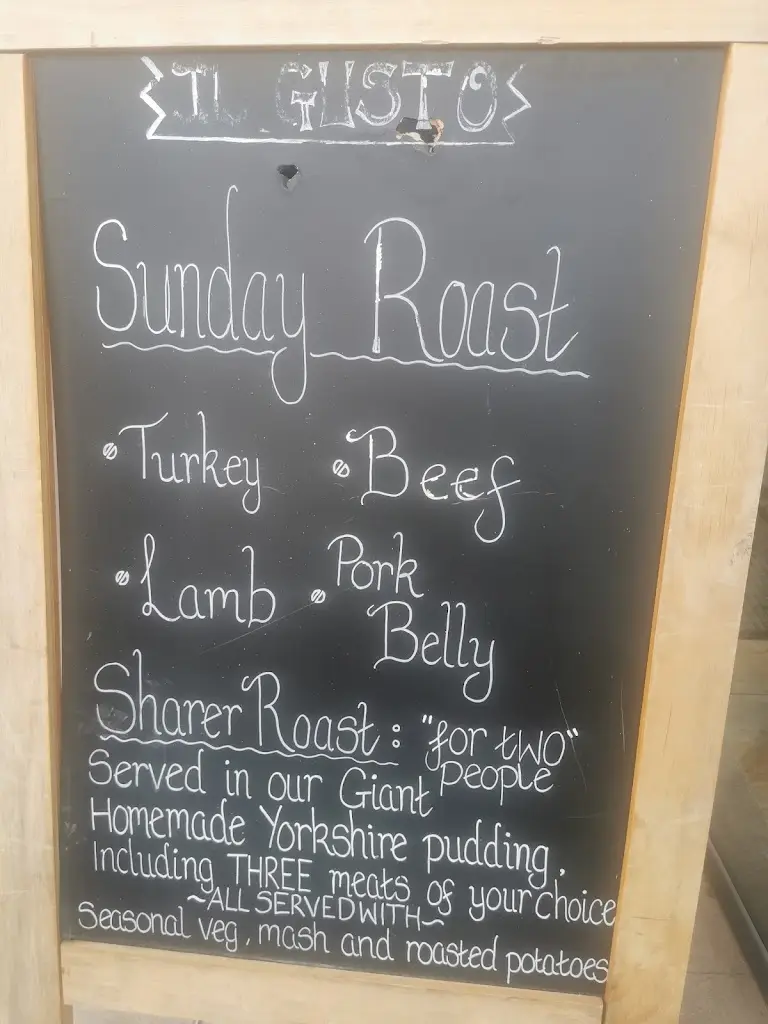 IL GUSTO
Sunday Roast
• Turkey • Beef
• Lamb • Pork
Belly
Sharer Roast: "for two"
people
Served in our Giant
Homemade Yorkshire pudding,
Including THREE meats of your choice
~ALL SERVED WITH~
Seasonal veg, mash and roasted potatoes